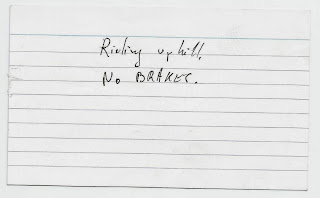 Riding uphill.
No BRAKES.